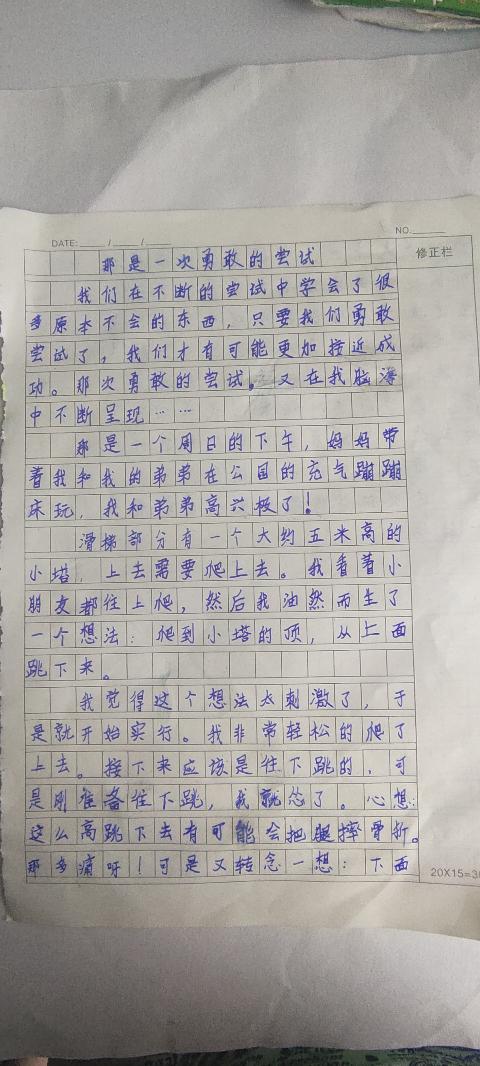 DATE: ___/___/___ NO.______
修正栏
那是一次勇敢的尝试
我们在不断的尝试中学会了很
多原本不会的东西，只要我们勇敢
尝试了，我们才有可能更加接近成
功。那次勇敢的尝试。又在我脑海
中不断呈现……
那是一个周日的下午，妈妈带
着我和我的弟弟在公园的充气蹦蹦
床玩，我和弟弟高兴极了！
滑梯部分有一个大约五米高的
小塔，上去需要爬上去。我看着小
朋友都往上爬，然后我油然而生了
一个想法：爬到小塔的顶，从上面
跳下来。
我觉得这个想法太刺激了，于
是就开始实行。我非常轻松的爬了
上去。接下来应该是往下跳的，可
是刚准备往下跳，我就怂了。心想：
这么高跳下去有可能会把腿摔骨折。
那多痛呀！可是又转念一想：下面
20X15=3